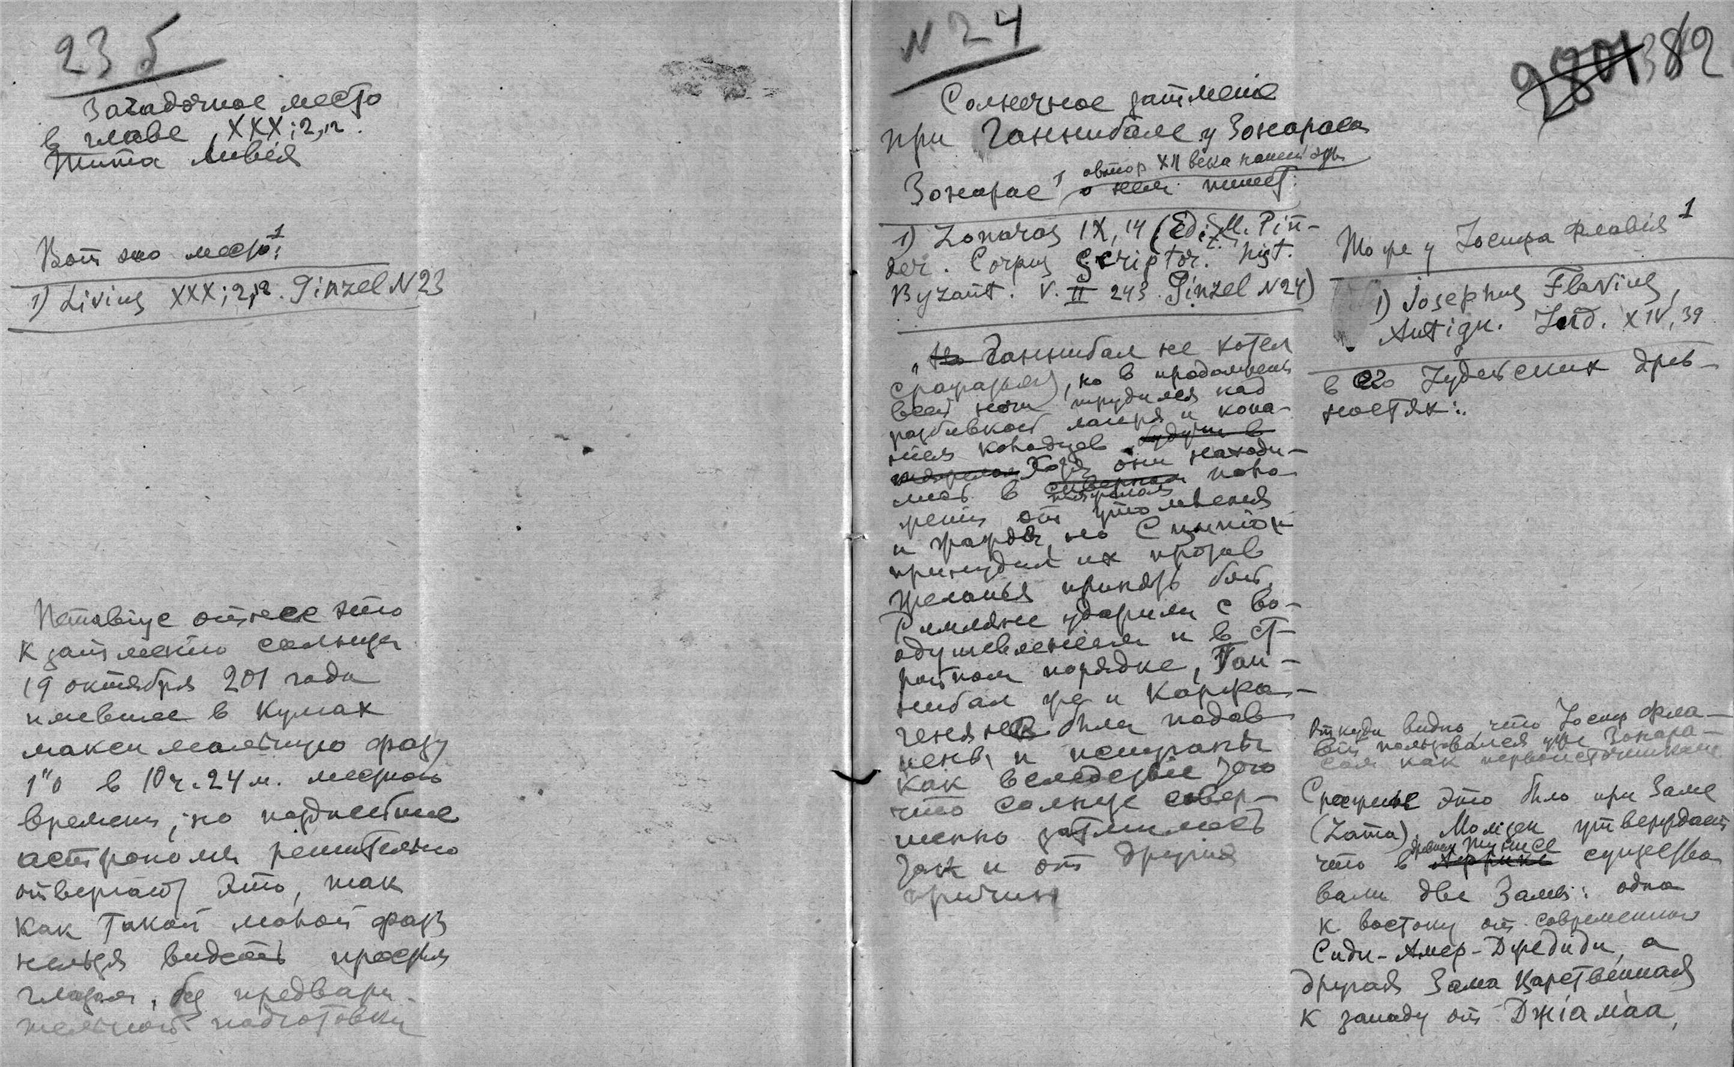 23 б
Загадочное место
в главе XXX; 2, 12.
Тита Ливія
Вот это место:1
1) Livius XXX; 2, 12. Ginzel N 23
Петавіус отнес это
к затмению солнца
19 октября 201 года
имевшее в Кумах
максимальную фазу
1"0 в 10 ч. 24 м. местного
времени, но позднейшие
астрономы решительно
отвергают это, так
как такой малой фазы
нельзя видеть простым
глазом, без предвари-
тельной подготовки
N 24
Солнечное затмение
при Ганнибале у Зонараса
автор XII века нашей эры
Зонарас1 о нем пишет:
1) Zonaras IX, 14 (Edit. M. Pin-
der. Corpus Scriptor. hist.
Byzant. V. II 243. Ginzel N 24)
„Ганнибал не хотел
сражаться, но в продолжении
всей ночи трудился над
разбивкой лагеря и копа-
нием колодцев
Хотя они находи-
лись в поло-
жении от утомления
и жажды, но Сципіон
принудил их против
желанья принять бой.
Римляне ударили с во-
одушевленіем и в ст-
ройном порядке, Ган-
нибал же и Карфа-
геняне были подав-
лены и испуганы
как вследствіе того
что солнце совер-
шенно затмилось
так и от других
причин
2801 382
То же у Іосифа Флавія1
1) Josephus Flavius,
Antiqu. Jud. XIV, 39
в его Іудейских древ-
ностях:
Откуда видно, что Іосиф Фла-
вій пользовался уже Зонара-
сом как первоисточником
Сраженье это было при Заме
(Zama), Момзен утверждает
что в древн. Тунисе существо
вали две Замы: одна
к востоку от современной
Сиди-Амер-Джедиди, а
другая Зама Царственная
к западу от Джіамаа,